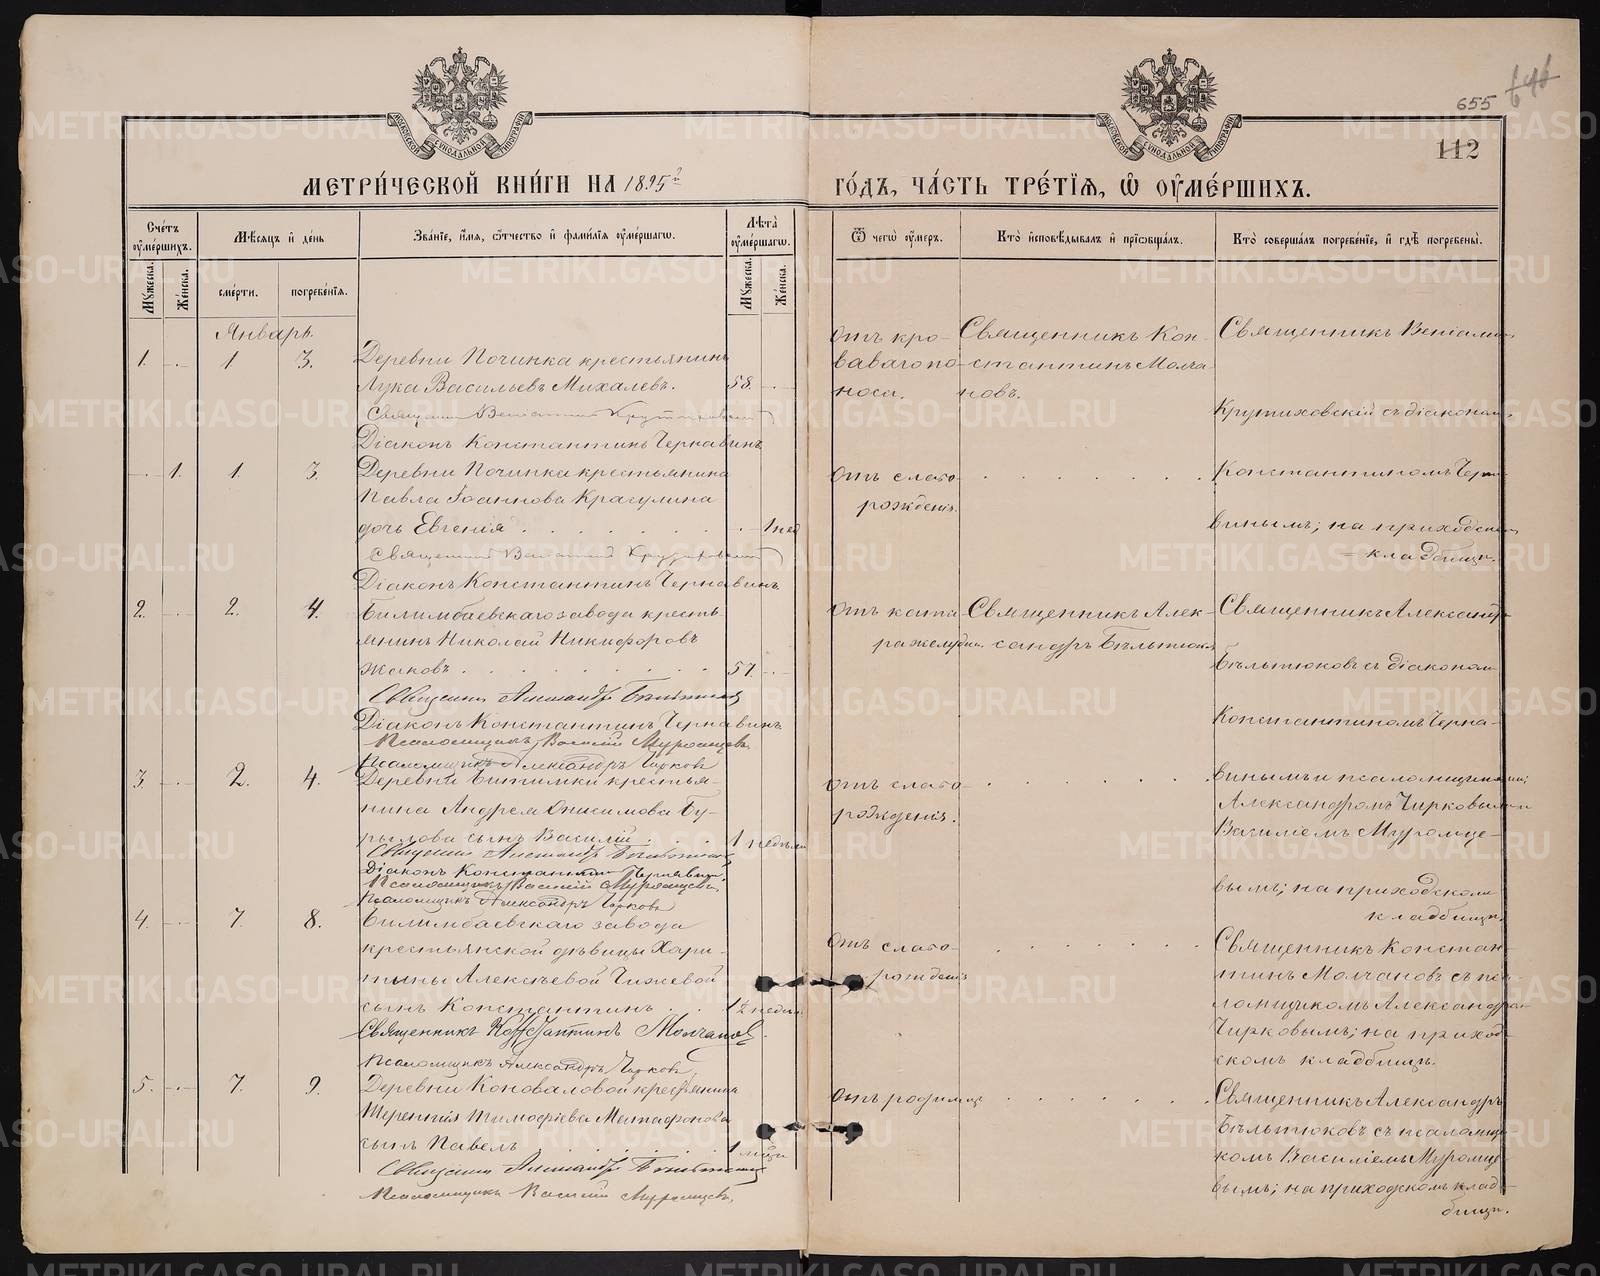 655
112
МЕТРИ́ЧЕСКОЙ КНИ́ГИ НА 1895й
ГО́ДЪ, ЧА́СТЬ ТРЕ́ТЇЯ, Ѡ ОУМЕ́РШИХЪ.
Сче́тъ оуме́ршихъ.
Мѣ́сяцъ и де́нь
Зва́нїе, и́мя, ѻ́тчество и фами́лїя оуме́ршагѡ.
Лѣ́та оуме́ршагѡ.
Ѿ чегѡ̀ оу́меръ.
Кто̀ исповѣ́дывалъ и прїѡбща́лъ.
Кто̀ соверша́лъ погребе́нїе, и гдѣ̀ погребены̀.
Мꙋ́жеска.
Же́нска.
сме́рти.
погребе́нїя.
Мꙋ́жеска.
Же́нска.
Январь.
1. 1 3.
Деревни Починка крестьянинъ
Лука Васильевъ Михалевъ. 58.
Священникъ Веніаминъ Крутиховскій
Діаконъ Константинъ Чернавинъ
Отъ кро-
ваваго по-
носа.
Священникъ Кон-
стантинъ Молча-
новъ.
Священникъ Веніамин
Крутиховскій съ діаконом
1. 1. 3.
Деревни Починка крестьянина
Павла Іоаннова Красулина
дочь Евгенія 1 нед
Священникъ Веніаминъ Крутиховскій
Діаконъ Константинъ Чернавинъ
Отъ слабо-
рожденія.
Константиномъ Черна-
винымъ; на приходском
кладбищѣ.
2. 2. 4.
Билимбаевскаго завода кресть-
янинъ Николай Никифоровъ
Жаковъ 57.
Священникъ Александръ Бѣльтюковъ
Діаконъ Константинъ Чернавинъ
Псаломщикъ Василій Муромцевъ
Псаломщикъ Александръ Чирковъ
Отъ ката-
ра желудка.
Священникъ Алек-
сандръ Бѣльтюков
Священникъ Александр
Бѣльтюковъ съ діакономъ
Константиномъ Черна-
3. 2. 4.
Деревни Битимки крестья-
нина Андрея Онисимова Бу-
рылова сынъ Василій 1 недѣли
Священникъ Александръ Бѣльтюковъ
Діаконъ Константинъ Чернавинъ
Псаломщикъ Василій Муромцевъ
Псаломщикъ Александръ Чирковъ
Отъ слабо-
рожденія.
винымъ и псаломщиками:
Александромъ Чирковымъ и
Василіемъ Муромце-
вымъ; на приходскомъ
кладбищѣ.
4. 7. 8.
Билимбаевскаго завода
крестьянской дѣвицы Хари-
тины Алексѣевой Чижевой
сынъ Константинъ 1½ недѣли
Священникъ Константинъ Молчановъ.
Псаломщикъ Александръ Чирковъ
Отъ слабо-
рожденія
Священникъ Констан-
тинъ Молчановъ съ пса-
ломщикомъ Александром
Чирковымъ; на приход-
скомъ кладбищѣ.
5. 7. 9.
Деревни Коноваловой крестьянина
Терентія Тимофіева Матафонова
сынъ Павелъ 1 мѣсяц
Священникъ Александръ Бѣльтюковъ
Псаломщикъ Василій Муромцевъ.
Отъ родимца
Священникъ Александръ
Бѣльтюковъ съ псаломщи-
комъ Василіемъ Муромце-
вымъ; на приходскомъ клад-
бищѣ.
METRIKI.GASO-URAL.RU